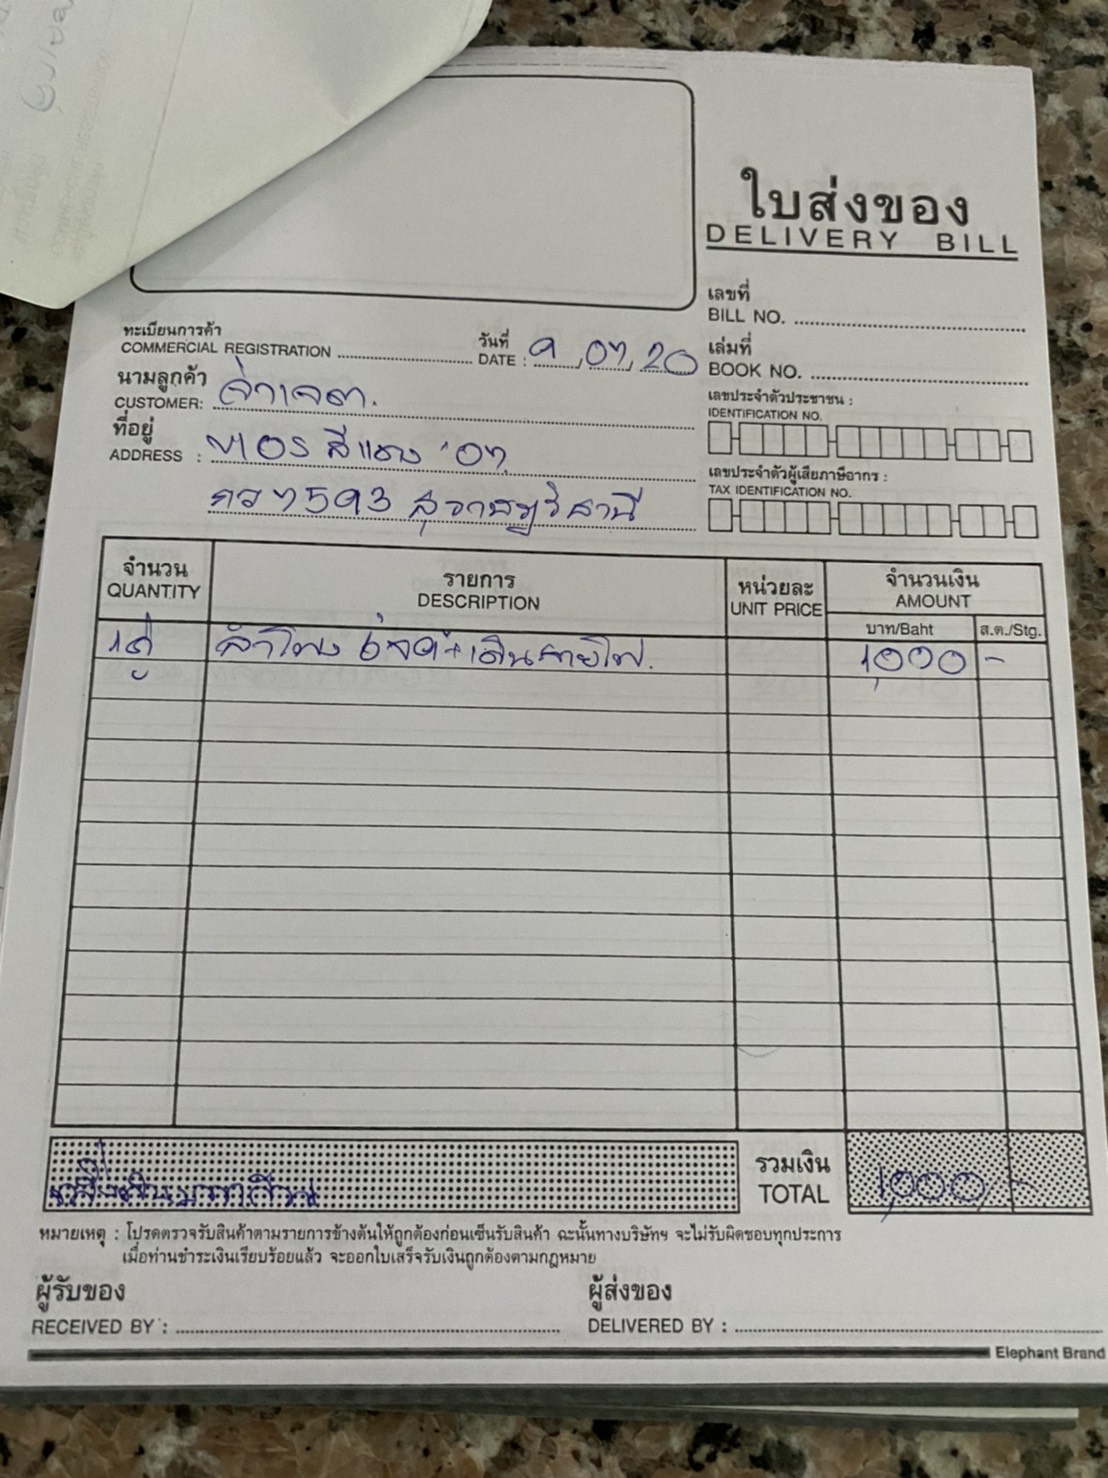 ใบส่งของ
DELIVERY BILL
เลขที่
BILL NO.
ทะเบียนการค้า
COMMERCIAL REGISTRATION
วันที่
DATE : 9, 07, 20
เล่มที่
BOOK NO.
นามลูกค้า
CUSTOMER: จ่าเจต.
เลขประจำตัวประชาชน :
IDENTIFICATION NO.
ที่อยู่
ADDRESS : สีแดง '07
เลขประจำตัวผู้เสียภาษีอากร :
TAX IDENTIFICATION NO.
กว 7593 สุราษฎร์ธานี
จำนวน
QUANTITY
รายการ
DESCRIPTION
หน่วยละ
UNIT PRICE
จำนวนเงิน
AMOUNT
บาท/Baht
ส.ต./Stg.
1คู่ ลำโพง 6 +เดินสายไฟ. 1,000 -
หนึ่งพันบาทถ้วน
รวมเงิน
TOTAL
1,000 -
หมายเหตุ : โปรดตรวจรับสินค้าตามรายการข้างต้นให้ถูกต้องก่อนเซ็นรับสินค้า ฉะนั้นทางบริษัทฯ จะไม่รับผิดชอบทุกประการ
เมื่อท่านชำระเงินเรียบร้อยแล้ว จะออกใบเสร็จรับเงินถูกต้องตามกฎหมาย
ผู้รับของ
RECEIVED BY :
ผู้ส่งของ
DELIVERED BY :
Elephant Brand